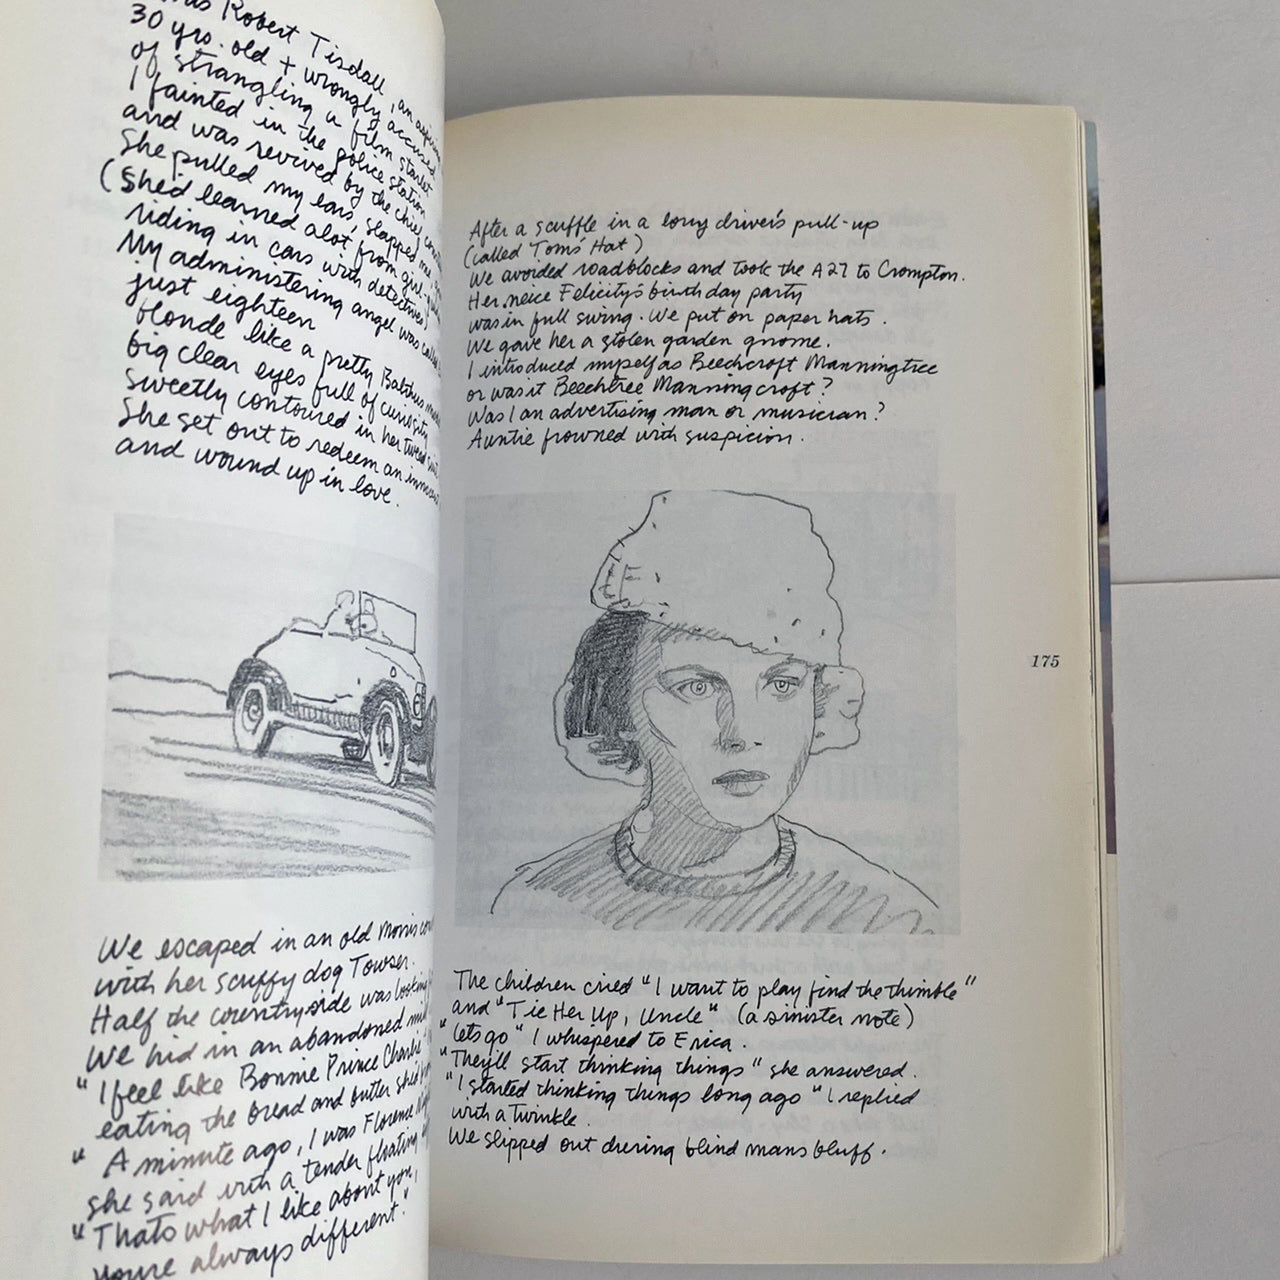 Robert Tisdall, an
30 yrs. old + wrongly accused
of strangling a film starlet
I fainted in the police station
and was revived by the chief
She pulled my ears, slapped me
(She'd learned alot from girl-
riding in cars with detectives)
My administering angel was
just eighteen
blonde like a pretty Balthus
big clear eyes full of curiosity
sweetly contoured in her tweed
She set out to redeem an
and wound up in love.
We escaped in an old Morris
with her scuffy dog Towser.
Half the countryside was looking
We hid in an abandoned
"I feel like Bonnie Prince Charlie"
eating the bread and butter she'd
"A minute ago, I was Florence
she said with a tender floating
"Thats what I like about you,
you're always different."
After a scuffle in a lorry driver's pull-up
(called Toms' Hat)
We avoided roadblocks and took the A27 to Crompton.
Her neice Felicity's birthday party
was in full swing. We put on paper hats.
We gave her a stolen garden gnome.
I introduced myself as Beechcroft Manningtree
or was it Beechtree Manningcroft?
Was I an advertising man or musician?
Auntie frowned with suspicion.
175
The children cried "I want to play find the thimble"
and "Tie Her Up, Uncle" (a sinister note)
"Lets go" I whispered to Erica.
"They'll start thinking things" she answered.
"I started thinking things long ago" I replied
with a twinkle.
We slipped out during blind mans bluff.